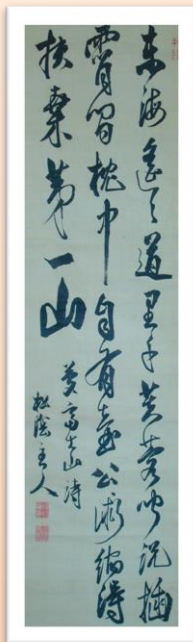 東海遙々道里千芙蓉聞說插
霄間枕中自有壺公術縮得
扶桑第一山
夢富士山詩
松陰主人